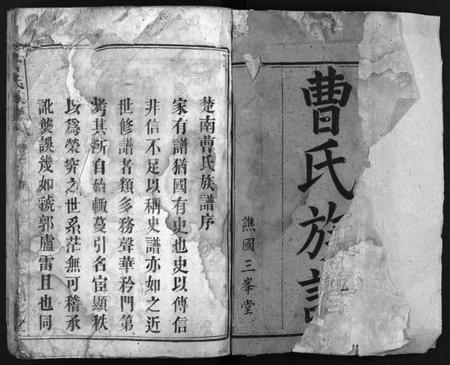 曹氏族譜
譙國三峯堂
楚南曹氏族譜序
家有譜猶國有史也史以傳信
非信不足以稱史譜亦如之近
世修譜者類多務聲華矜門第
考其所自始輒蔓引名宦顯秩
以爲榮究之世系茫無可稽承
訛襲誤幾如虢郭盧雷且也同